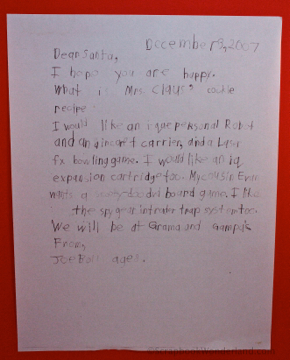 December 9, 2007
Dear Santa,
I hope you are happy.
What is Mrs. Claus's cookie
recipe
I would like an i que personal Robot
and an aircraft carrier, and a Laser
fx bowling game. I would like an iq
expansion cartridge too. My cousin
wants a board game. I like
the spy gear intruder trap system too.
We will be at Grama and Gampu's
From,
Joe